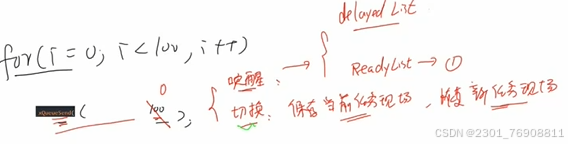 delayed List
for(i=0; i<100, i++)
0
xQueueSend( 100 );
唤醒: → { ReadyList → ①
切换: 保存当前任务现场, 恢复新任务现场
CSDN @2301_76908811